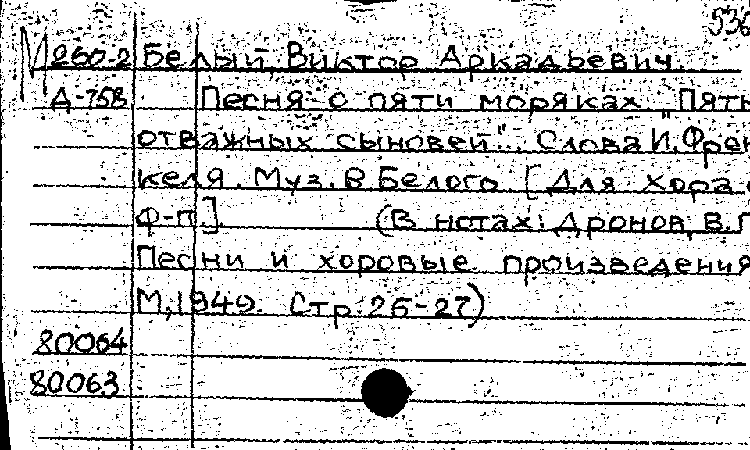 536
М 260-2 Белый, Виктор Аркадьевич.
Д-758 Песня о пяти моряках. "Пять
отважных сыновей". Слова И. Френ
келя. Муз. В Белого [Для хора с
ф-п] (В нотах: Дронов, В.Г
Песни и хоровые произведения
М, 1949. Стр. 26-27)
80064
80063